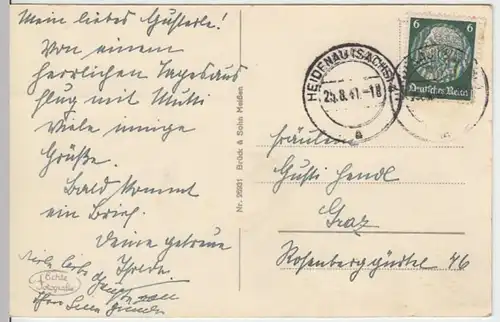 Mein liebes Gusterle!
Von einem
herrlichen Tagesaus
flug mit Mutti
viele innige
Grüße.
Bald kommt
ein Brief.
Deine getreue
Viele liebe
von
Echte
Fotografie
Nr. 26931 Brück & Sohn Meißen
HEIDENAU (SACHS)
25.8.41.-18
a
6 6
Deutsches Reich
Fräulein
Gusti Hendl
Graz
Rosenberggürtel 46